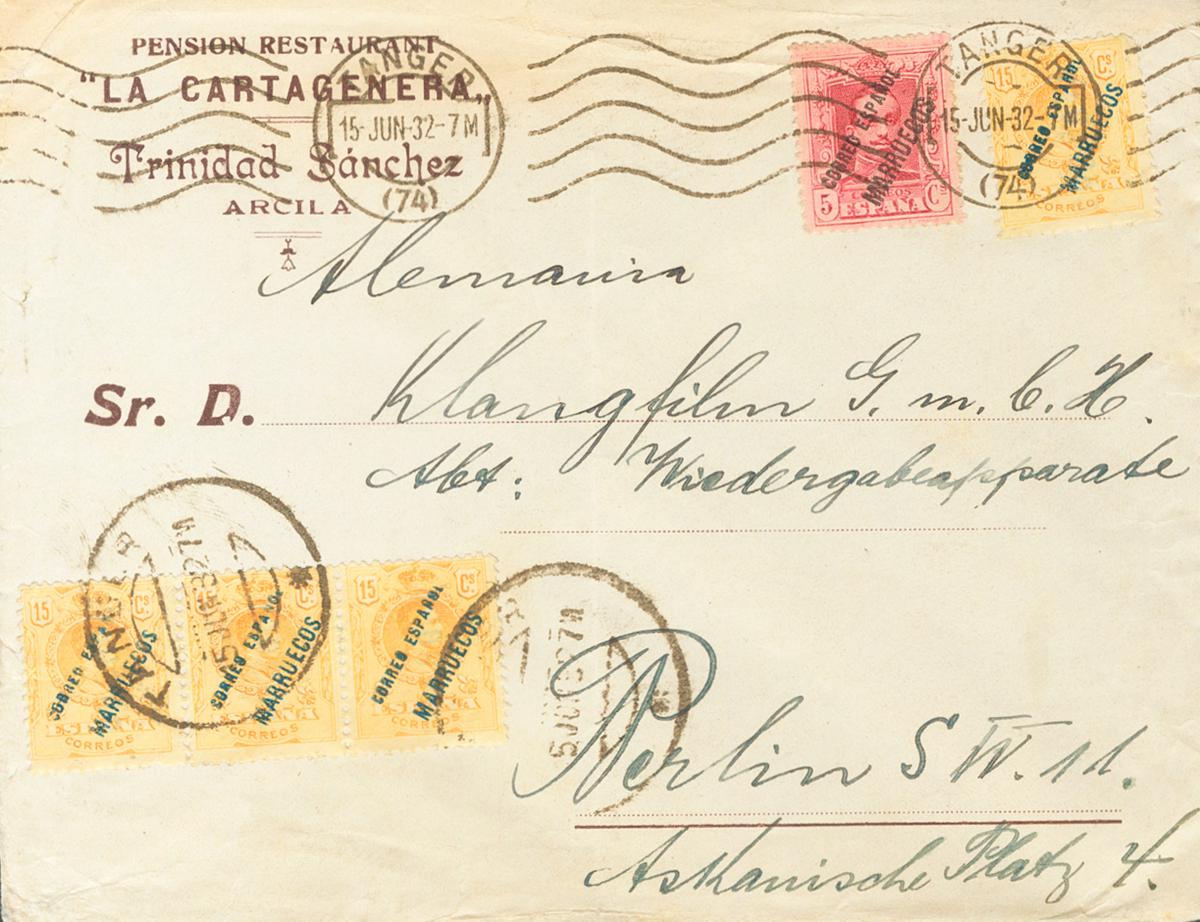 PENSION RESTAURANT
"LA CARTAGENERA"
Trinidad Sánchez
ARCILA
TANGER
15-JUN-32-7M
(74)
5 ESPAÑA Cs
CORREOS
CORREO ESPAÑOL
MARRUECOS
TANGER
15-JUN-32-7M
(74)
15 Cs
CORREOS
CORREO ESPAÑOL
MARRUECOS
Alemania
Sr. D. Klangfilm G. m. b. H.
Abt: Wiedergabeapparate
TANGER
15 JUN 32 7M
15 Cs
CORREO ESPAÑOL
MARRUECOS
ESPAÑA
CORREOS
15 Cs
CORREO ESPAÑOL
MARRUECOS
ESPAÑA
CORREOS
15 Cs
CORREO ESPAÑOL
MARRUECOS
ESPAÑA
CORREOS
5 JUN 32 7M
Berlin SW. 11.
Askanische Platz 4.